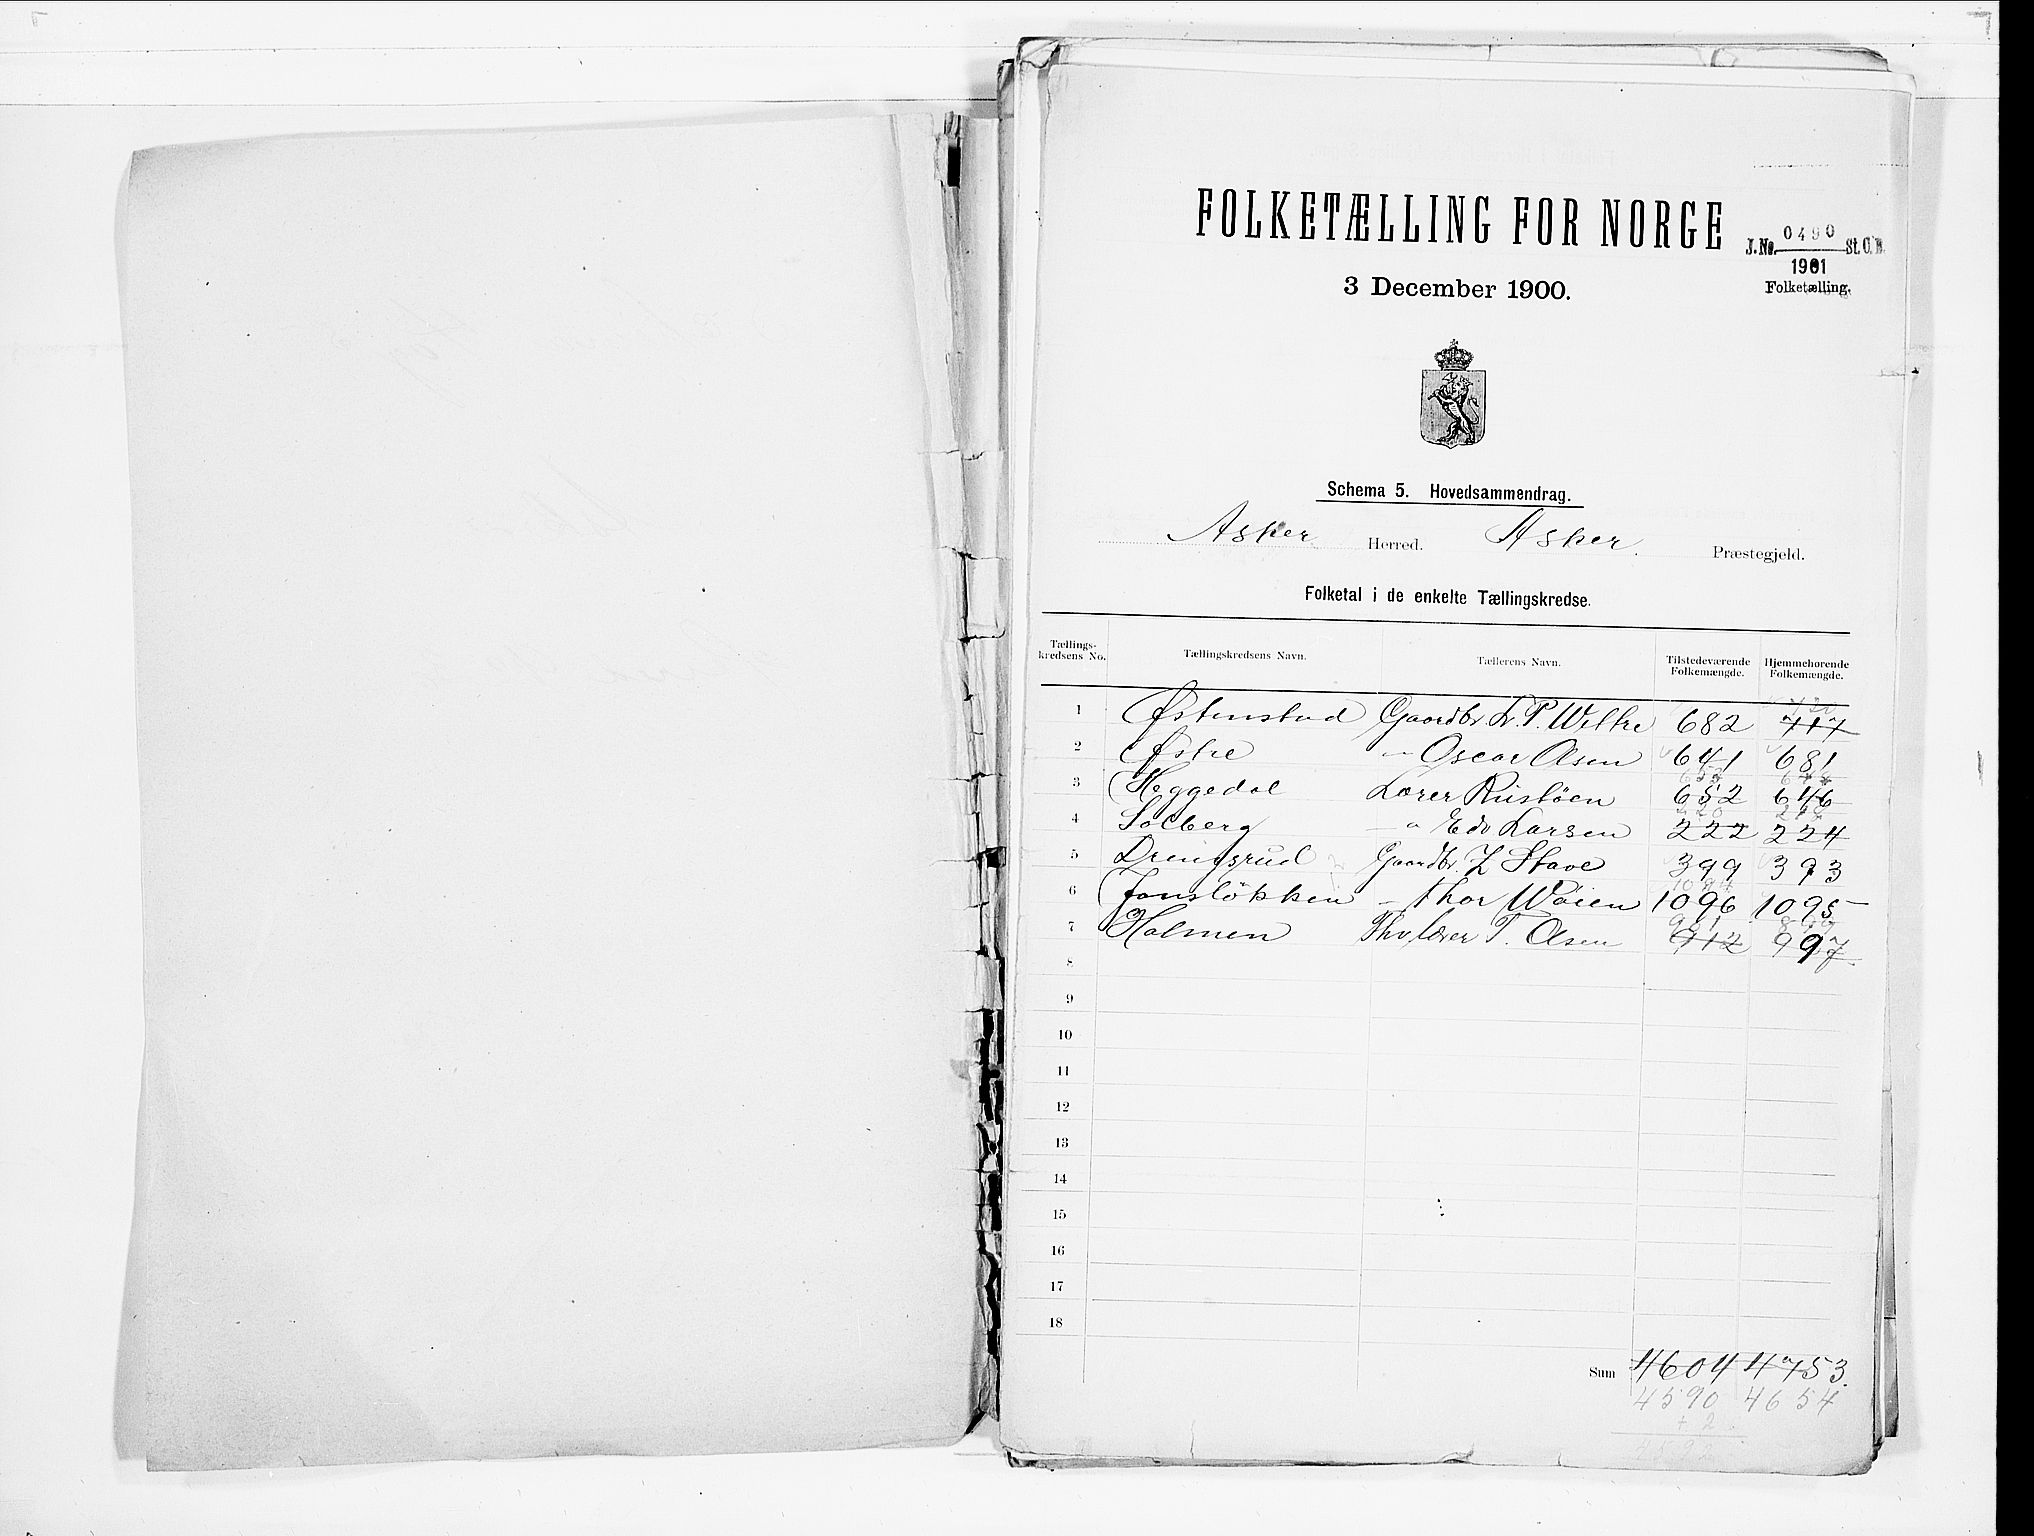 FOLKETÆLLING FOR NORGE
J.No. 0490 St.C.B.
1901
Folketælling.
3 December 1900.
Schema 5. Hovedsammendrag.
Asker Herred. Asker Præstegjeld.
Folketal i de enkelte Tællingskredse.
Tællings-kredsens No. Tællingskredsens Navn. Tællerens Navn. Tilstedeværende Folkemængde. Hjemmehørende Folkemængde.
1 Østenstad Gaardbr. P. Weltre 682 717
2 Østre " Oscar Olsen 641 681
3 Heggedal Lærer Rustöen 652 646
4 Solberg " Edv Larsen 222 224
5 Drengsrud Gaardbr. Z Stave 399 393
6 Jonsløkken " Thor Wöien 1096 1095
7 Holmen lærer T. Olsen 912 997
8
9
10
11
12
13
14
15
16
17
18
Sum 4604 4753.
4590 4654
+ 2
4592